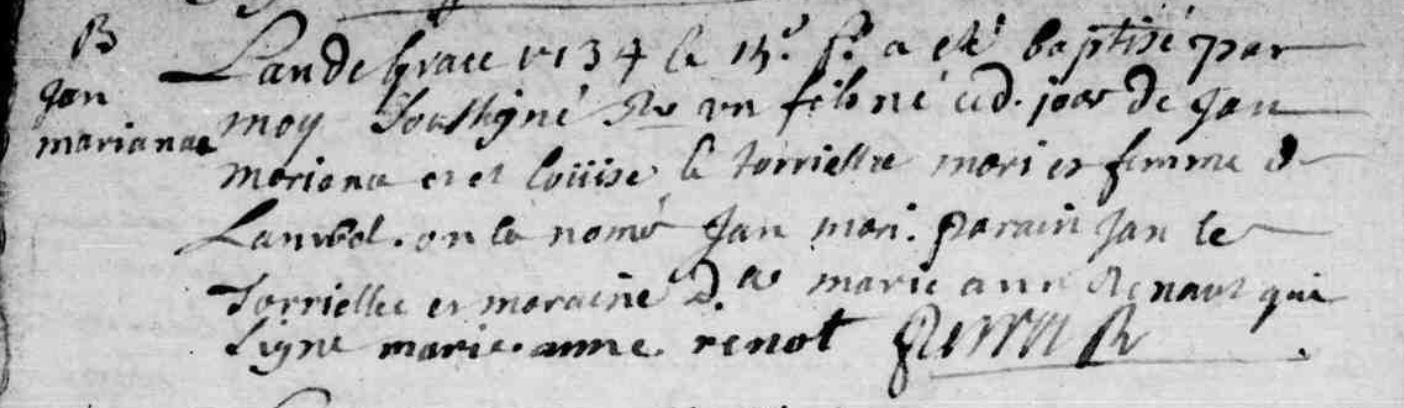 B
Jan
marianae
Lan de grace 1734 le 15.e f.r a eté baptisé par
moy Soussigné Rr un fils né ced. jour de Jan
mariana et et loüise le torriellec mari et femme d
Lanvol. on la nomé Jan mari. parain Jan le
Torriellec et maraine d.lle marie ann Renaut qui
Signe marie. anne. renot